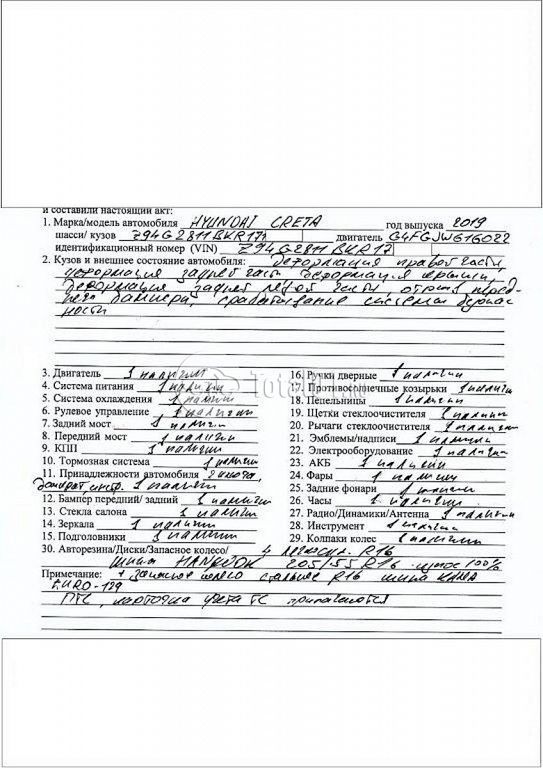 и составили настоящий акт:
1. Марка/модель автомобиля HYUNDAI CRETA год выпуска 2019
шасси/ кузов Z94G2811BKR171 двигатель G4FGJW616022
идентификационный номер (VIN) Z94G2811BKR17
2. Кузов и внешнее состояние автомобиля: деформация правой части,
деформация задней части деформация крыши
деформация задней левой части, отрыв перед-
него бампера, срабатывание системы безопас
ности
3. Двигатель 1 наличии
4. Система питания 1 наличии
5. Система охлаждения 1 наличии
6. Рулевое управление 1 наличии
7. Задний мост 1 наличии
8. Передний мост 1 наличии
9. КПП 1 наличии
10. Тормозная система 1 наличии
11. Принадлежности автомобиля
домкрат, 1 наличии
12. Бампер передний/ задний 1 наличии
13. Стекла салона 1 наличии
14. Зеркала 1 наличии
15. Подголовники 1 наличии
16. Ручки дверные 1 наличии
17. Противосолнечные козырьки 1 наличии
18. Пепельницы 1 наличии
19. Щетки стеклоочистителя 1 наличии
20. Рычаги стеклоочистителя 1 наличии
21. Эмблемы/надписи 1 наличии
22. Электрооборудование 1 наличии
23. АКБ 1 наличии
24. Фары 1 наличии
25. Задние фонари 1 наличии
26. Часы 1 наличии
27. Радио/Динамики/Антенна 1 наличии
28. Инструмент 1 наличии
29. Колпаки колес 1 наличии
30. Авторезина/Диски/Запасное колесо/ 4 легкоспл. R16
шины HANKOOK 205/55 R16 износ 100%
Примечание: + Запасное колесо стальное R16 шина КАМА
EURO-129
ПТС, карточка учета ТС прилагаются